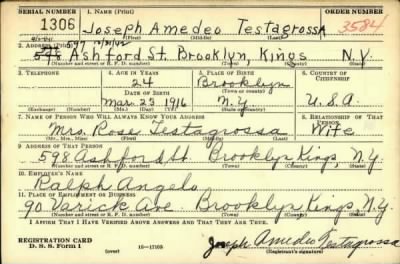 SERIAL NUMBER 1. NAME (Print) ORDER NUMBER
1306 Joseph Amedeo Testagrossa 3584
(First) (Middle) (Last)
2. ADDRESS (Print)
597 Ashford St. Brooklyn, Kings N.Y.
(Number and street or R. F. D. number) (Town) (County) (State)
3. TELEPHONE 4. AGE IN YEARS 5. PLACE OF BIRTH 6. COUNTRY OF CITIZENSHIP
24 Brooklyn
DATE OF BIRTH (Town or county)
Mar. 23 1916 N.Y. U.S.A
(Exchange) (Number) (Mo.) (Day) (Yr.) (State or country)
7. NAME OF PERSON WHO WILL ALWAYS KNOW YOUR ADDRESS 8. RELATIONSHIP OF THAT PERSON
Mrs. Rose Testagrossa Wife
(Mr., Mrs., Miss) (First) (Middle) (Last)
9. ADDRESS OF THAT PERSON
598 Ashford St. Brooklyn Kings, N.Y.
(Number and street or R. F. D. number) (Town) (County) (State)
10. EMPLOYER'S NAME
Ralph Angelo
11. PLACE OF EMPLOYMENT OR BUSINESS
90 Varick Ave Brooklyn Kings, N.Y.
(Number and street or R. F. D. number) (Town) (County) (State)
I AFFIRM THAT I HAVE VERIFIED ABOVE ANSWERS AND THAT THEY ARE TRUE.
REGISTRATION CARD
D. S. S. Form 1 (over) 16—17105 Joseph Amedeo Testagrossa
(Registrant's signature)